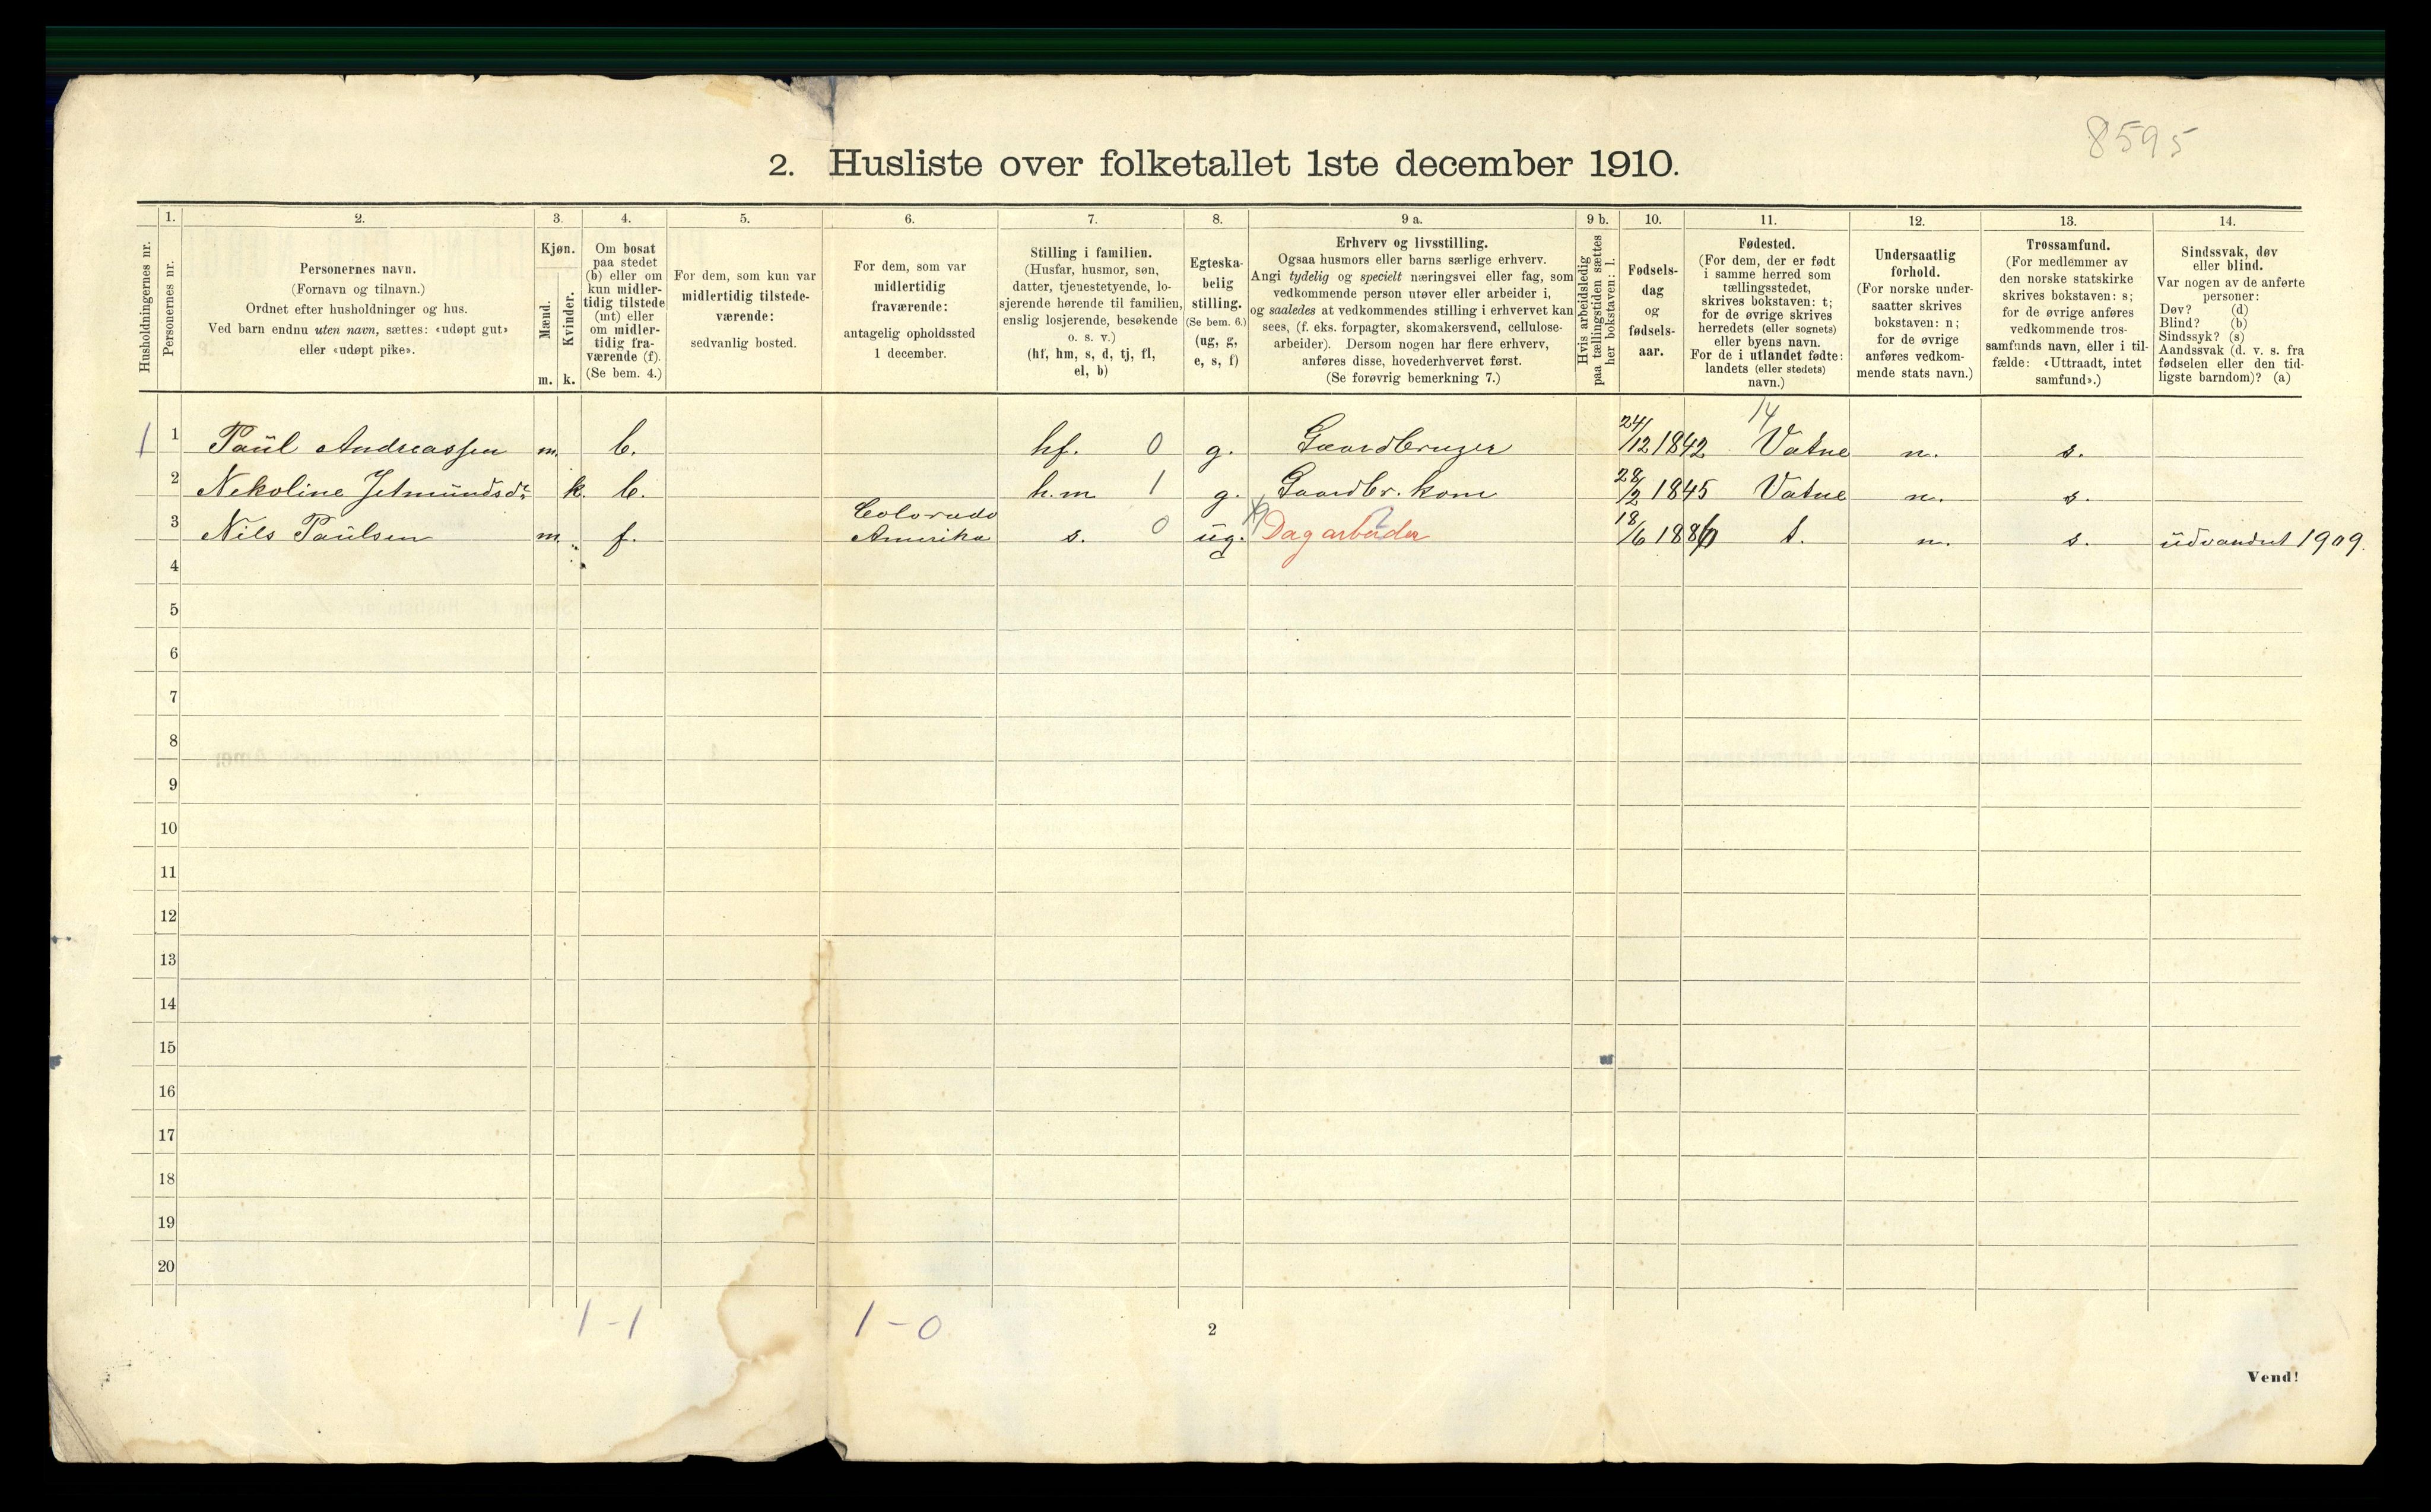 8595
2. Husliste over folketallet 1ste december 1910.
Husholdningernes nr.
1.
Personernes nr.
2.
Personernes navn.
(Fornavn og tilnavn.)
Ordnet efter husholdninger og hus.
Ved barn endnu uten navn, sættes: «udøpt gut»
eller «udøpt pike».
3.
Kjøn.
Mænd.
Kvinder.
m. k.
4.
Om bosat
paa stedet
(b) eller om
kun midler-
tidig tilstede
(mt) eller
om midler-
tidig fra-
værende (f).
(Se bem. 4.)
5.
For dem, som kun var
midlertidig tilstede-
værende:
sedvanlig bosted.
6.
For dem, som var
midlertidig
fraværende:
antagelig opholdssted
1 december.
7.
Stilling i familien.
(Husfar, husmor, søn,
datter, tjenestetyende, lo-
sjerende hørende til familien,
enslig losjerende, besøkende
o. s. v.)
(hf, hm, s, d, tj, fl,
el, b)
8.
Egteska-
belig
stilling.
(Se bem. 6.)
(ug, g,
e, s, f)
9 a.
Erhverv og livsstilling.
Ogsaa husmors eller barns særlige erhverv.
Angi tydelig og specielt næringsvei eller fag, som
vedkommende person utøver eller arbeider i,
og saaledes at vedkommendes stilling i erhvervet kan
sees, (f. eks. forpagter, skomakersvend, cellulose-
arbeider). Dersom nogen har flere erhverv,
anføres disse, hovederhvervet først.
(Se forøvrig bemerkning 7.)
9 b.
Hvis arbeidsledig
paa tællingstiden sættes
her bokstaven: l.
10.
Fødsels-
dag
og
fødsels-
aar.
11.
Fødested.
(For dem, der er født
i samme herred som
tællingsstedet,
skrives bokstaven: t;
for de øvrige skrives
herredets (eller sognets)
eller byens navn.
For de i utlandet fødte:
landets (eller stedets)
navn.)
12.
Undersaatlig
forhold.
(For norske under-
saatter skrives
bokstaven: n;
for de øvrige
anføres vedkom-
mende stats navn.)
13.
Trossamfund.
(For medlemmer av
den norske statskirke
skrives bokstaven: s;
for de øvrige anføres
vedkommende tros-
samfunds navn, eller i til-
fælde: «Uttraadt, intet
samfund».)
14.
Sindssvak, døv
eller blind.
Var nogen av de anførte
personer:
Døv? (d)
Blind? (b)
Sindssyk? (s)
Aandssvak (d. v. s. fra
fødselen eller den tid-
ligste barndom)? (a)
14
1 1 Paul Andreassen m. b. hf. 0 g. Gaardbruger 24/12 1842 Vatne n. s.
2 Nekoline Jetmundsdr k. b. h.m 1 g. Gaardbr. kone 28/2 1845 Vatne n. s.
Colorado
3 Nils Paulsen m. f. Amerika s. 0 ug. Dagarbeider 18/6 1886 t. n. s. udvandret 1909.
4
5
6
7
8
9
10
11
12
13
14
15
16
17
18
19
20
1-1 1-0
2
Vend!